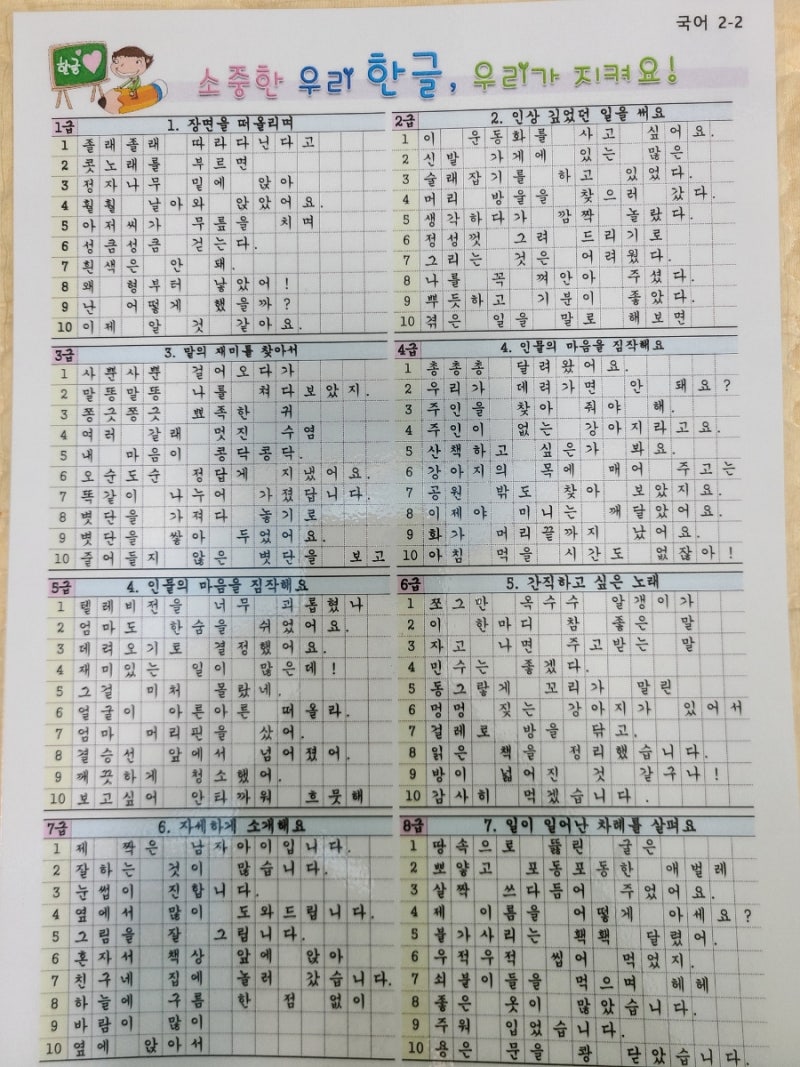 국어 2-2
한글
소중한 우리 한글, 우리가 지켜요!
1급 1. 장면을 떠올리며
1 졸래졸래 따라다닌다고
2 콧노래를 부르면
3 정자나무 밑에 앉아
4 훨훨 날아와 앉았어요.
5 아저씨가 무릎을 치며
6 성큼성큼 걷는다.
7 흰색은 안 돼.
8 왜 형부터 낳았어!
9 난 어떻게 했을까?
10 이제 알 것 같아요.
2급 2. 인상 깊었던 일을 써요
1 이 운동화를 사고 싶어요.
2 신발 가게에 있는 많은
3 술래잡기를 하고 있었다.
4 머리 방울을 찾으러 갔다.
5 생각하다가 깜짝 놀랐다.
6 정성껏 그려 드리기로
7 그리는 것은 어려웠다.
8 나를 꼭 껴안아 주셨다.
9 뿌듯하고 기분이 좋았다.
10 겪은 일을 말로 해보면
3급 3. 말의 재미를 찾아서
1 사뿐사뿐 걸어오다가
2 말똥말똥 나를 쳐다보았지.
3 쫑긋쫑긋 뾰족한 귀
4 여러 갈래 멋진 수염
5 내 마음이 콩닥콩닥.
6 오순도순 정답게 지냈어요.
7 똑같이 나누어 가졌답니다.
8 볏단을 가져다 놓기로
9 볏단을 쌓아 두었어요.
10 줄어들지 않은 볏단을 보고
4급 4. 인물의 마음을 짐작해요
1 총총총 달려왔어요.
2 우리가 데려가면 안 돼요?
3 주인을 찾아 줘야 해.
4 주인이 없는 강아지라고요.
5 산책하고 싶은가 봐요.
6 강아지의 목에 매어 주고는
7 공원 밖도 찾아 보았지요.
8 이제야 미니는 깨달았어요.
9 화가 머리끝까지 났어요.
10 아침 먹을 시간도 없잖아!
5급 4. 인물의 마음을 짐작해요
1 텔레비전을 너무 괴롭혔나
2 엄마도 한숨을 쉬었어요.
3 데려오기로 결정했어요.
4 재미있는 일이 많은데!
5 그걸 미처 몰랐네.
6 얼굴이 아른아른 떠올라.
7 엄마 머리핀을 샀어.
8 결승선 앞에서 넘어졌어.
9 깨끗하게 청소했어.
10 보고싶어 안타까워 흐뭇해
6급 5. 간직하고 싶은 노래
1 쪼그만 옥수수 알갱이가
2 이 한마디 참 좋은 말
3 자고 나면 주고받는 말
4 민수는 좋겠다.
5 동그랗게 꼬리가 말린
6 멍멍 짖는 강아지가 있어서
7 걸레로 방을 닦고.
8 읽은 책을 정리했습니다.
9 방이 넓어진 것 같구나!
10 감사히 먹겠습니다.
7급 6. 자세하게 소개해요
1 제 짝은 남자아이입니다.
2 잘하는 것이 많습니다.
3 눈썹이 진합니다.
4 옆에서 많이 도와드립니다.
5 그림을 잘 그립니다.
6 혼자서 책상 앞에 앉아
7 친구네 집에 놀러 갔습니다.
8 하늘에 구름 한 점 없이
9 바람이 많이
10 옆에 앉아서
8급 7. 일이 일어난 차례를 살펴요
1 땅속으로 뚫린 굴은
2 뽀얗고 포동포동한 애벌레
3 살짝 쓰다듬어 주었어요.
4 제 이름을 어떻게 아세요?
5 불가사리는 홱홱 달렸어.
6 우적우적 씹어 먹었지.
7 쇠붙이들을 먹으며 헤헤
8 좋은 옷이 많았습니다.
9 주워 입었습니다.
10 용은 문을 쾅 닫았습니다.